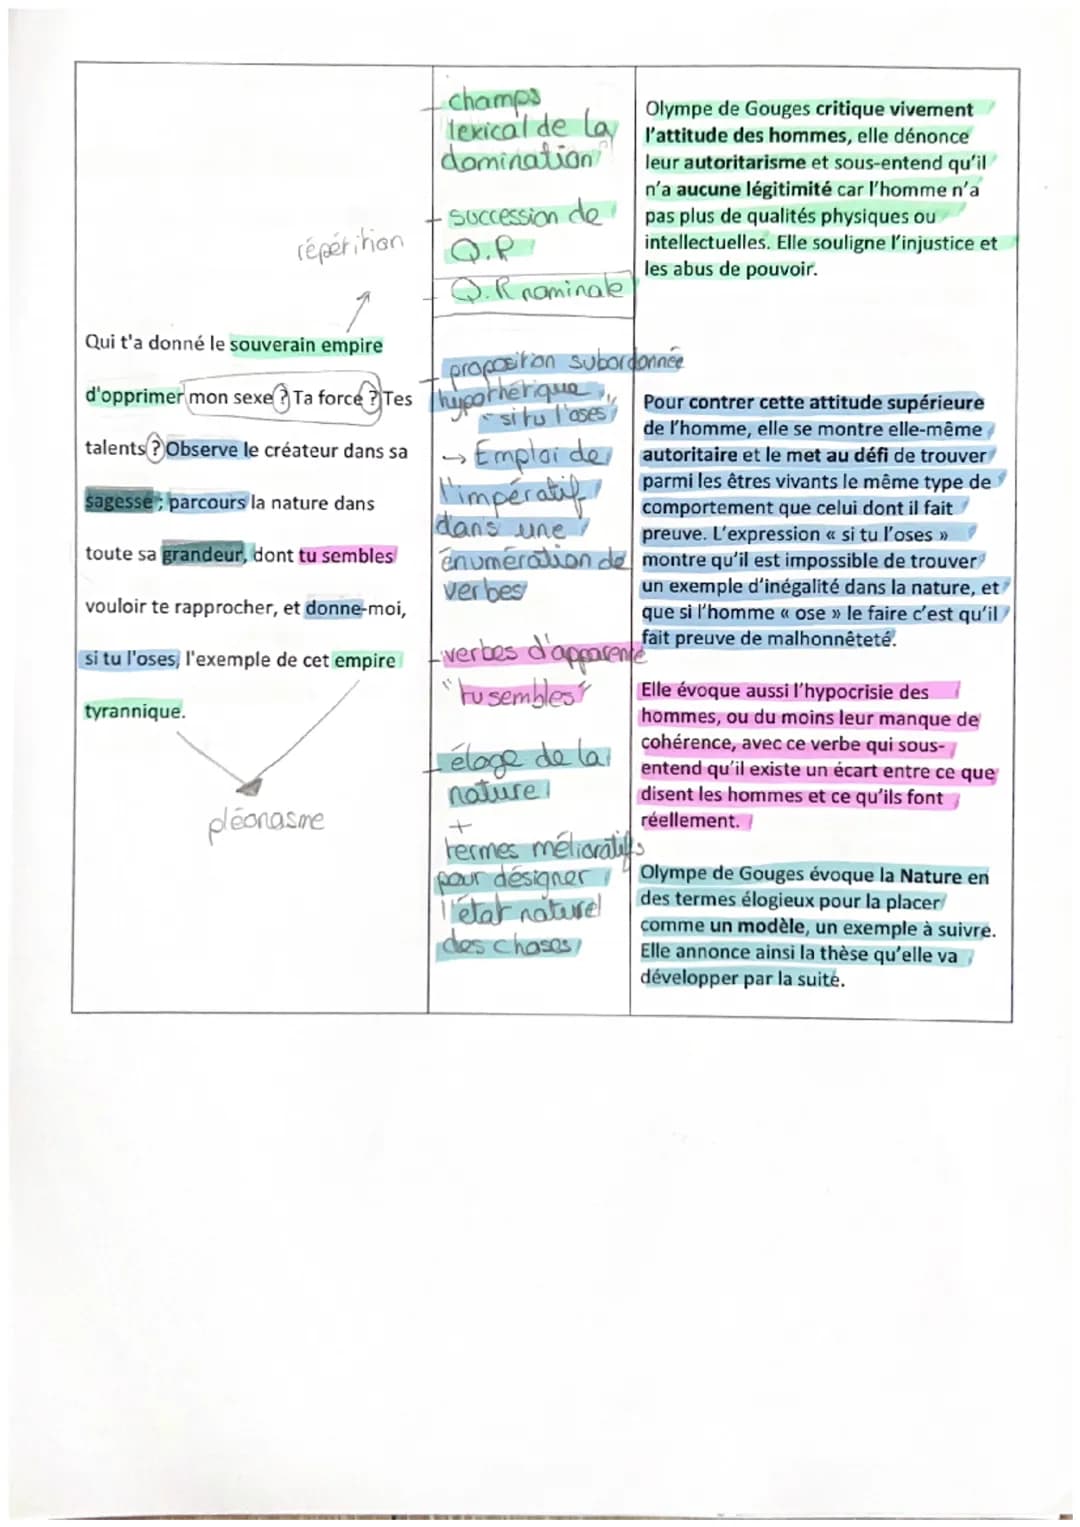 répétition
Qui t'a donné le souverain empire
d'opprimer mon sexe ? Ta force ? Tes
talents ? Observe le créateur dans sa
sagesse ; parcours la nature dans
toute sa grandeur, dont tu sembles
vouloir te rapprocher, et donne-moi,
si tu l'oses, l'exemple de cet empire
tyrannique.
pléonasme
- champs
lexical de la
domination
- succession de
Q.R
- Q.R nominale
- proposition subordonnée
hypothétique
"si tu l'oses"
→ Emploi de
l'impératif
dans une
énumération de
verbes
- verbes d'apparence
"tu sembles"
- éloge de la
nature
+
termes mélioratifs
pour désigner
l'état naturel
des choses
Olympe de Gouges critique vivement
l'attitude des hommes, elle dénonce
leur autoritarisme et sous-entend qu'il
n'a aucune légitimité car l'homme n'a
pas plus de qualités physiques ou
intellectuelles. Elle souligne l'injustice et
les abus de pouvoir.
Pour contrer cette attitude supérieure
de l'homme, elle se montre elle-même
autoritaire et le met au défi de trouver
parmi les êtres vivants le même type de
comportement que celui dont il fait
preuve. L'expression « si tu l'oses »
montre qu'il est impossible de trouver
un exemple d'inégalité dans la nature, et
que si l'homme « ose » le faire c'est qu'il
fait preuve de malhonnêteté.
Elle évoque aussi l'hypocrisie des
hommes, ou du moins leur manque de
cohérence, avec ce verbe qui sous-
entend qu'il existe un écart entre ce que
disent les hommes et ce qu'ils font
réellement.
Olympe de Gouges évoque la Nature en
des termes élogieux pour la placer
comme un modèle, un exemple à suivre.
Elle annonce ainsi la thèse qu'elle va
développer par la suite.